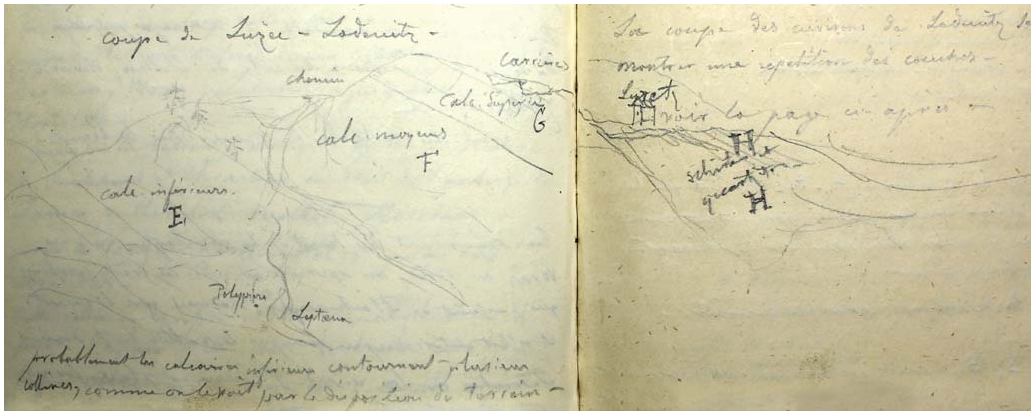 coupe de Luzec - Lodenitz -
carrières
chemin
calc. Supérieur
G
calc moyens
F
calc inférieurs.
E
Polypier
Leptæna
probablement les calcaires inférieurs contournent plusieurs
collines, comme on le voit par la disposition du terrain -
La coupe des environs de Lodenitz
montrer une répétition des couches -
Luzetz
H voir la page ci après -
H
schistes et
H